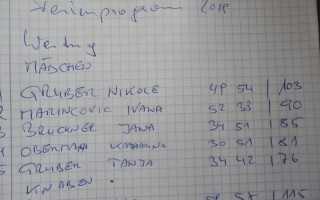 Ferienprogramm 2018
Wertung
MÄDCHEN
1 GRUBER NIKOLE 49 54 | 103
2 MARINCOVIC IVANA 52 38 | 90
3 BRUCKNER JANA 34 51 | 85
4 OBERMAIR KATHARINA 30 51 | 81
5 GRUBER TANJA 34 42 | 76
KNABEN
57 | 115